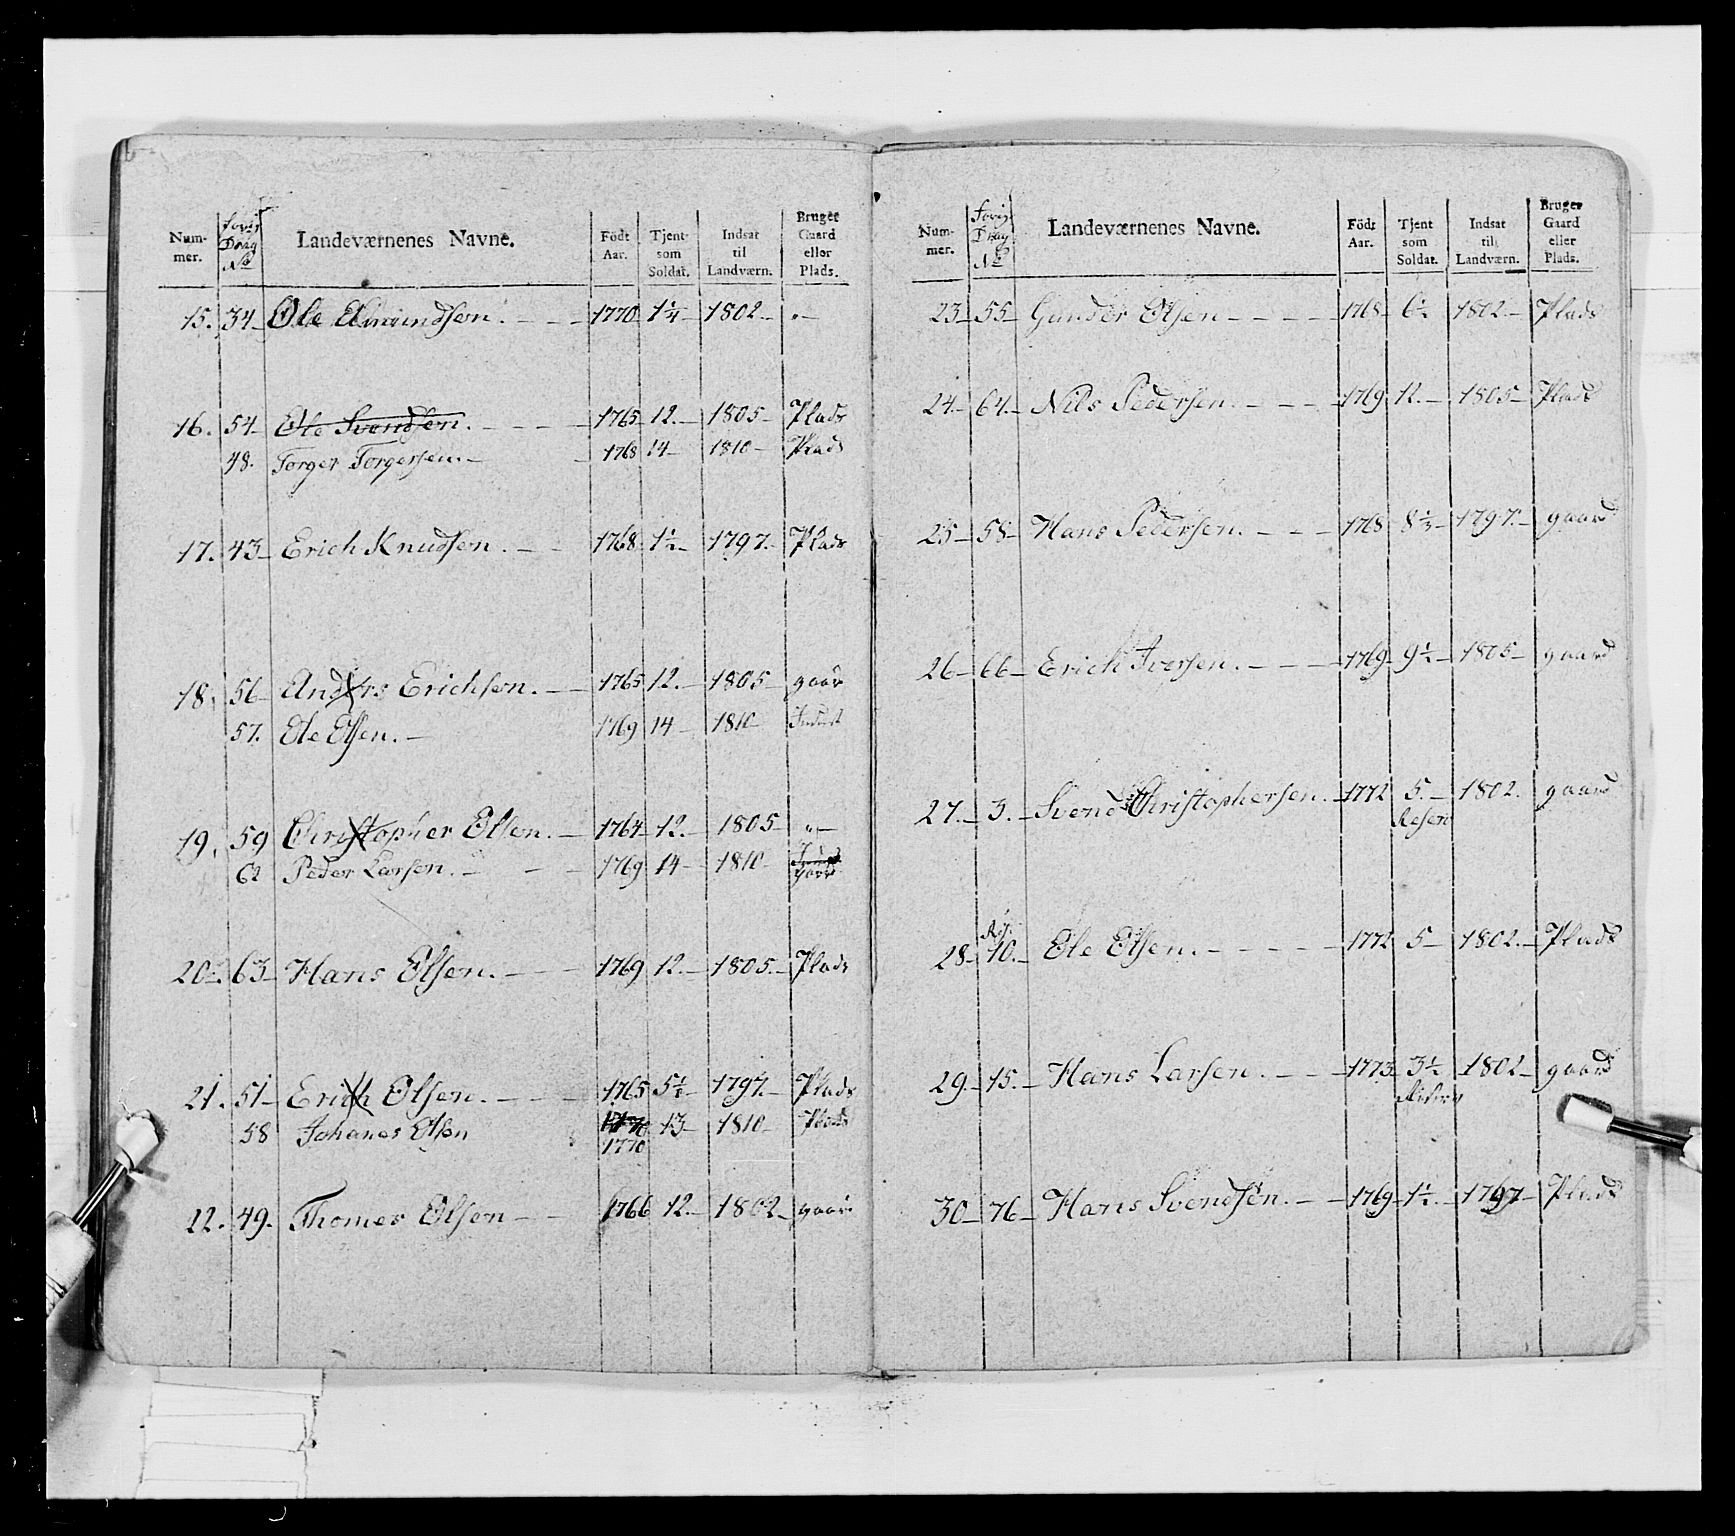 Num-mer. Forig Drag No Landeværnenes Navne. Födt Aar. Tjent som Soldat. Indsat til Landværn. Bruger Gaard eller Plads.
15. 34 Ole Amundsen. 1770 1¼ 1802 "
16. 54 Ole Svendsen. 1765 12. 1805 Plads
48. Torger Torgersen. 1768 14 1810 Plads
17. 43 Erich Knudsen. 1768 1½ 1797. Plads
18. 56 Anders Erichsen. 1765 12. 1805 gaar
57. Ole Olsen. 1769 14 1810
19. 59 Christopher Olsen. 1764 12. 1805 "
62 Peder Larsen. 1769 14 1810
20. 63 Hans Olsen. 1769 12. 1805. Plads
21. 51 Erich Olsen. 1765 5½ 1797. Plads
58 Johanes Olsen 1770 13 1810 Plads
1770
22. 49. Thomes Olsen 1766 12. 1802 gaar
Num-mer. Forig Drag No Landeværnenes Navne. Födt Aar. Tjent som Soldat. Indsat til Landværn. Bruger Gaard eller Plads.
23 55 Gunder Olsen 1768 6½ 1802. Plads
24. 64. Nils Pedersen. 1769 12. 1805 Plads
25 58 Hans Pedersen. 1768 8⅓ 1797. gaard
26 66 Erich Iversen. 1769 9½ 1805 gaard
27. 3. Svend Christophersen. 1772 5. 1802. gaard
Reserv
Res.
28 10. Ole Olsen. 1772 5 1802. Plads
29. 15. Hans Larsen. 1773 3½ 1802 gaard
Reserv
30 76 Hans Svendsen. 1769 1½. 1797 Plads